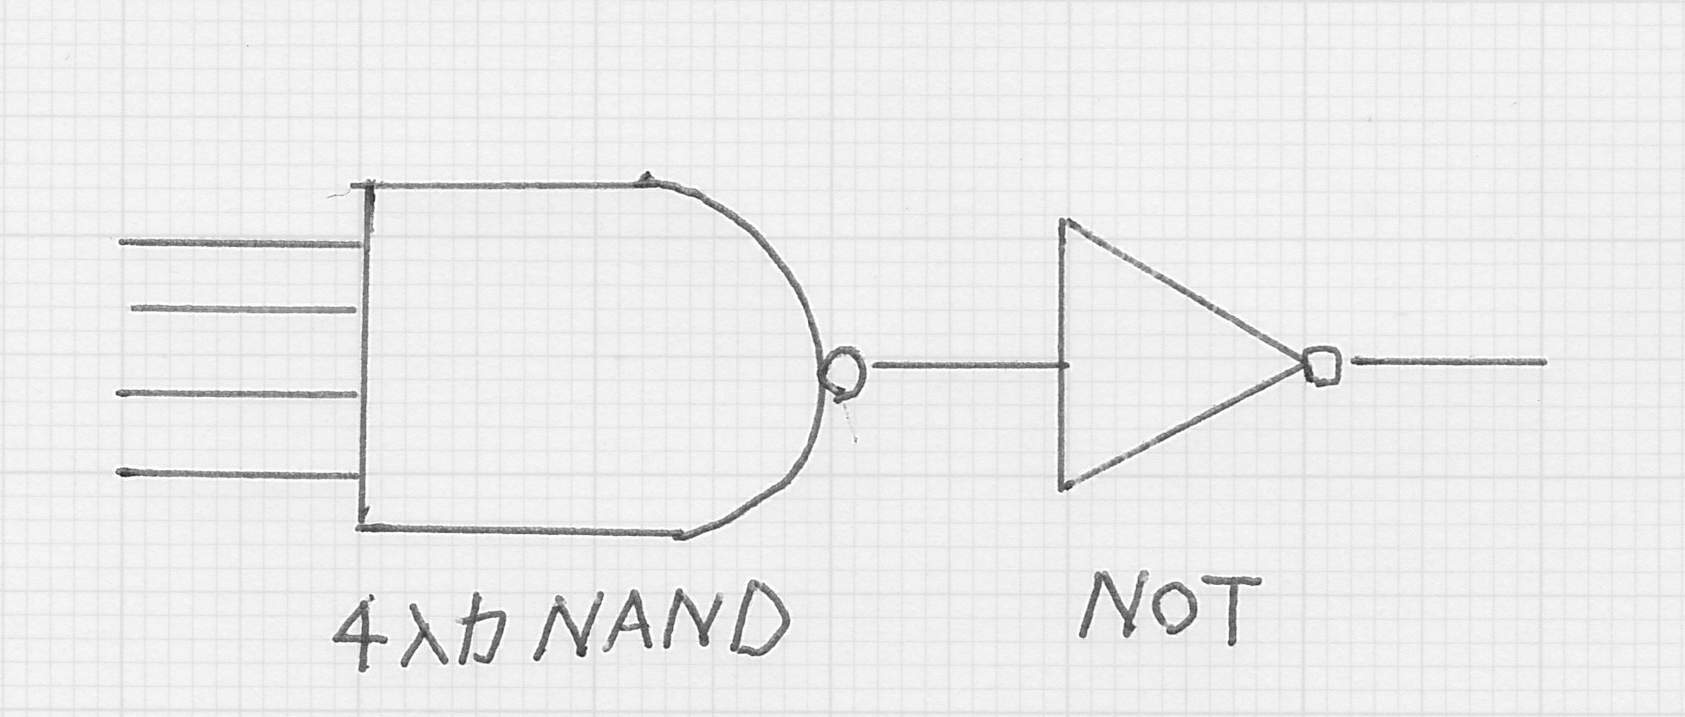 4入力NAND
NOT